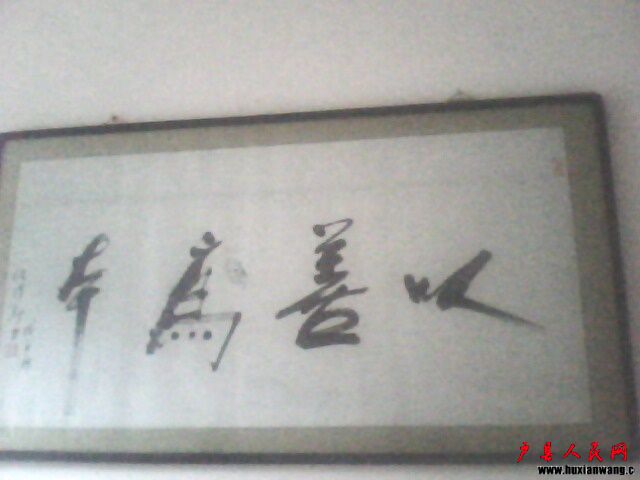 以善為本
户县人民网
www.huxianwang.c